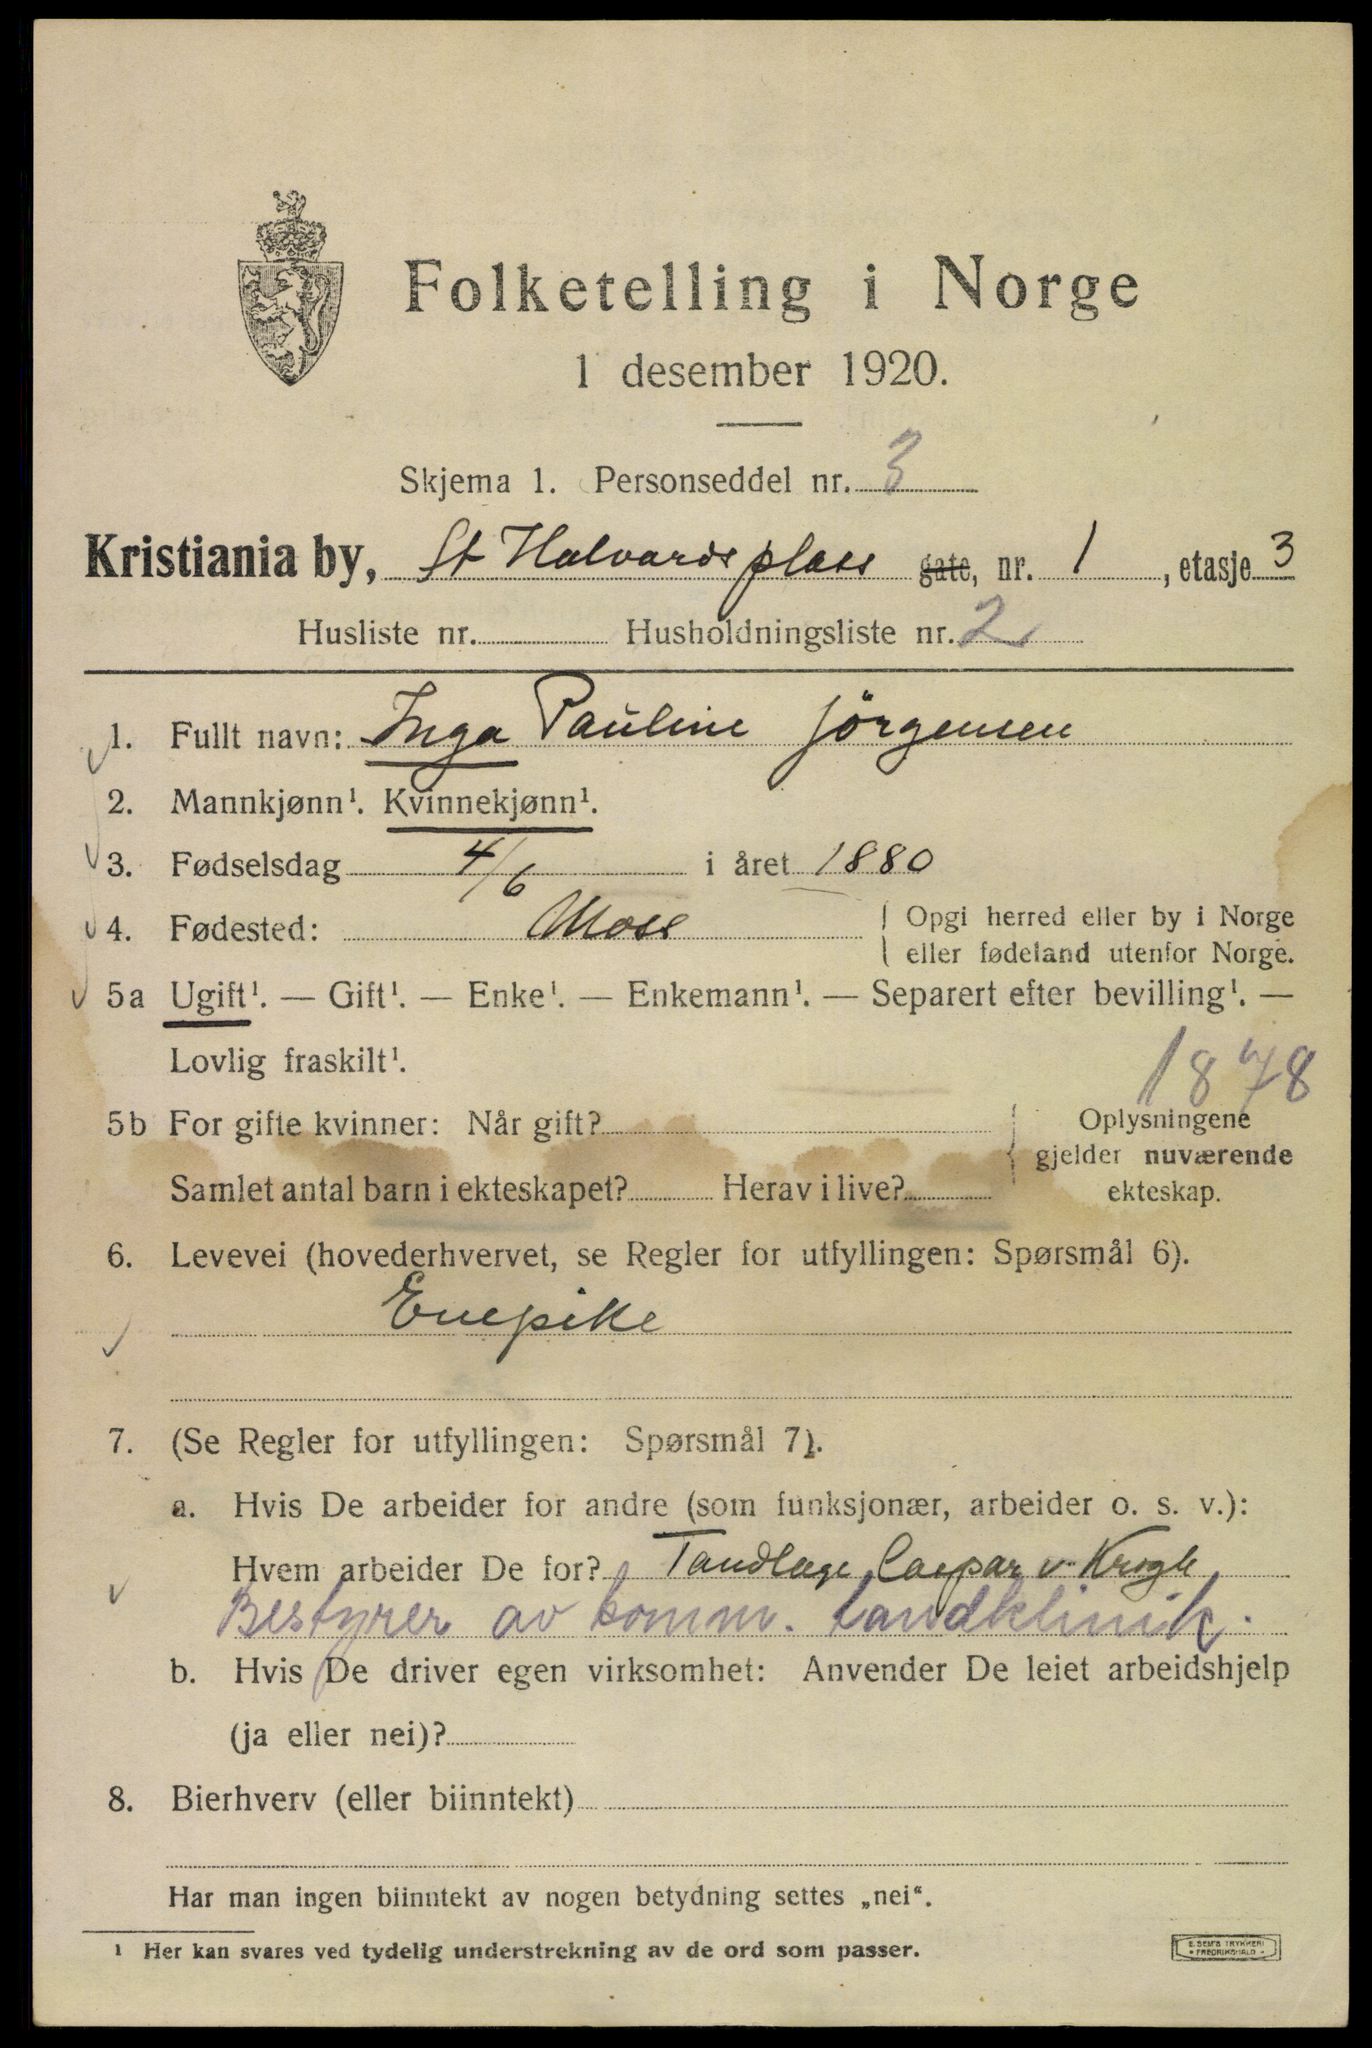 Folketelling i Norge
1 desember 1920.
Skjema 1. Personseddel nr. 3
Kristiania by, St Halvards plass gate, nr. 1, etasje 3
Husliste nr. Husholdningsliste nr. 2
1. Fullt navn: Inga Pauline Jörgensen
2. Mannkjønn¹. Kvinnekjønn¹.
3. Fødselsdag 4/6 i året 1880
4. Fødested: Moss
Opgi herred eller by i Norge
eller fødeland utenfor Norge.
5a Ugift¹. — Gift¹. — Enke¹. — Enkemann¹. — Separert efter bevilling¹. —
Lovlig fraskilt¹.
1878
5b For gifte kvinner: Når gift?
Samlet antal barn i ekteskapet? Herav i live?
Oplysningene
gjelder nuværende
ekteskap.
6. Levevei (hovederhvervet, se Regler for utfyllingen: Spørsmål 6).
Enepike
7. (Se Regler for utfyllingen: Spørsmål 7).
a. Hvis De arbeider for andre (som funksjonær, arbeider o. s. v.):
Hvem arbeider De for? Tandlæge Caspar v. Krogh
Bestyrer av komm. tandklinik.
b. Hvis De driver egen virksomhet: Anvender De leiet arbeidshjelp
(ja eller nei)?
8. Bierhverv (eller biinntekt)
Har man ingen biinntekt av nogen betydning settes „nei“.
¹ Her kan svares ved tydelig understrekning av de ord som passer.
E. SEM'S TRYKKERI
• FREDRIKSHALD •